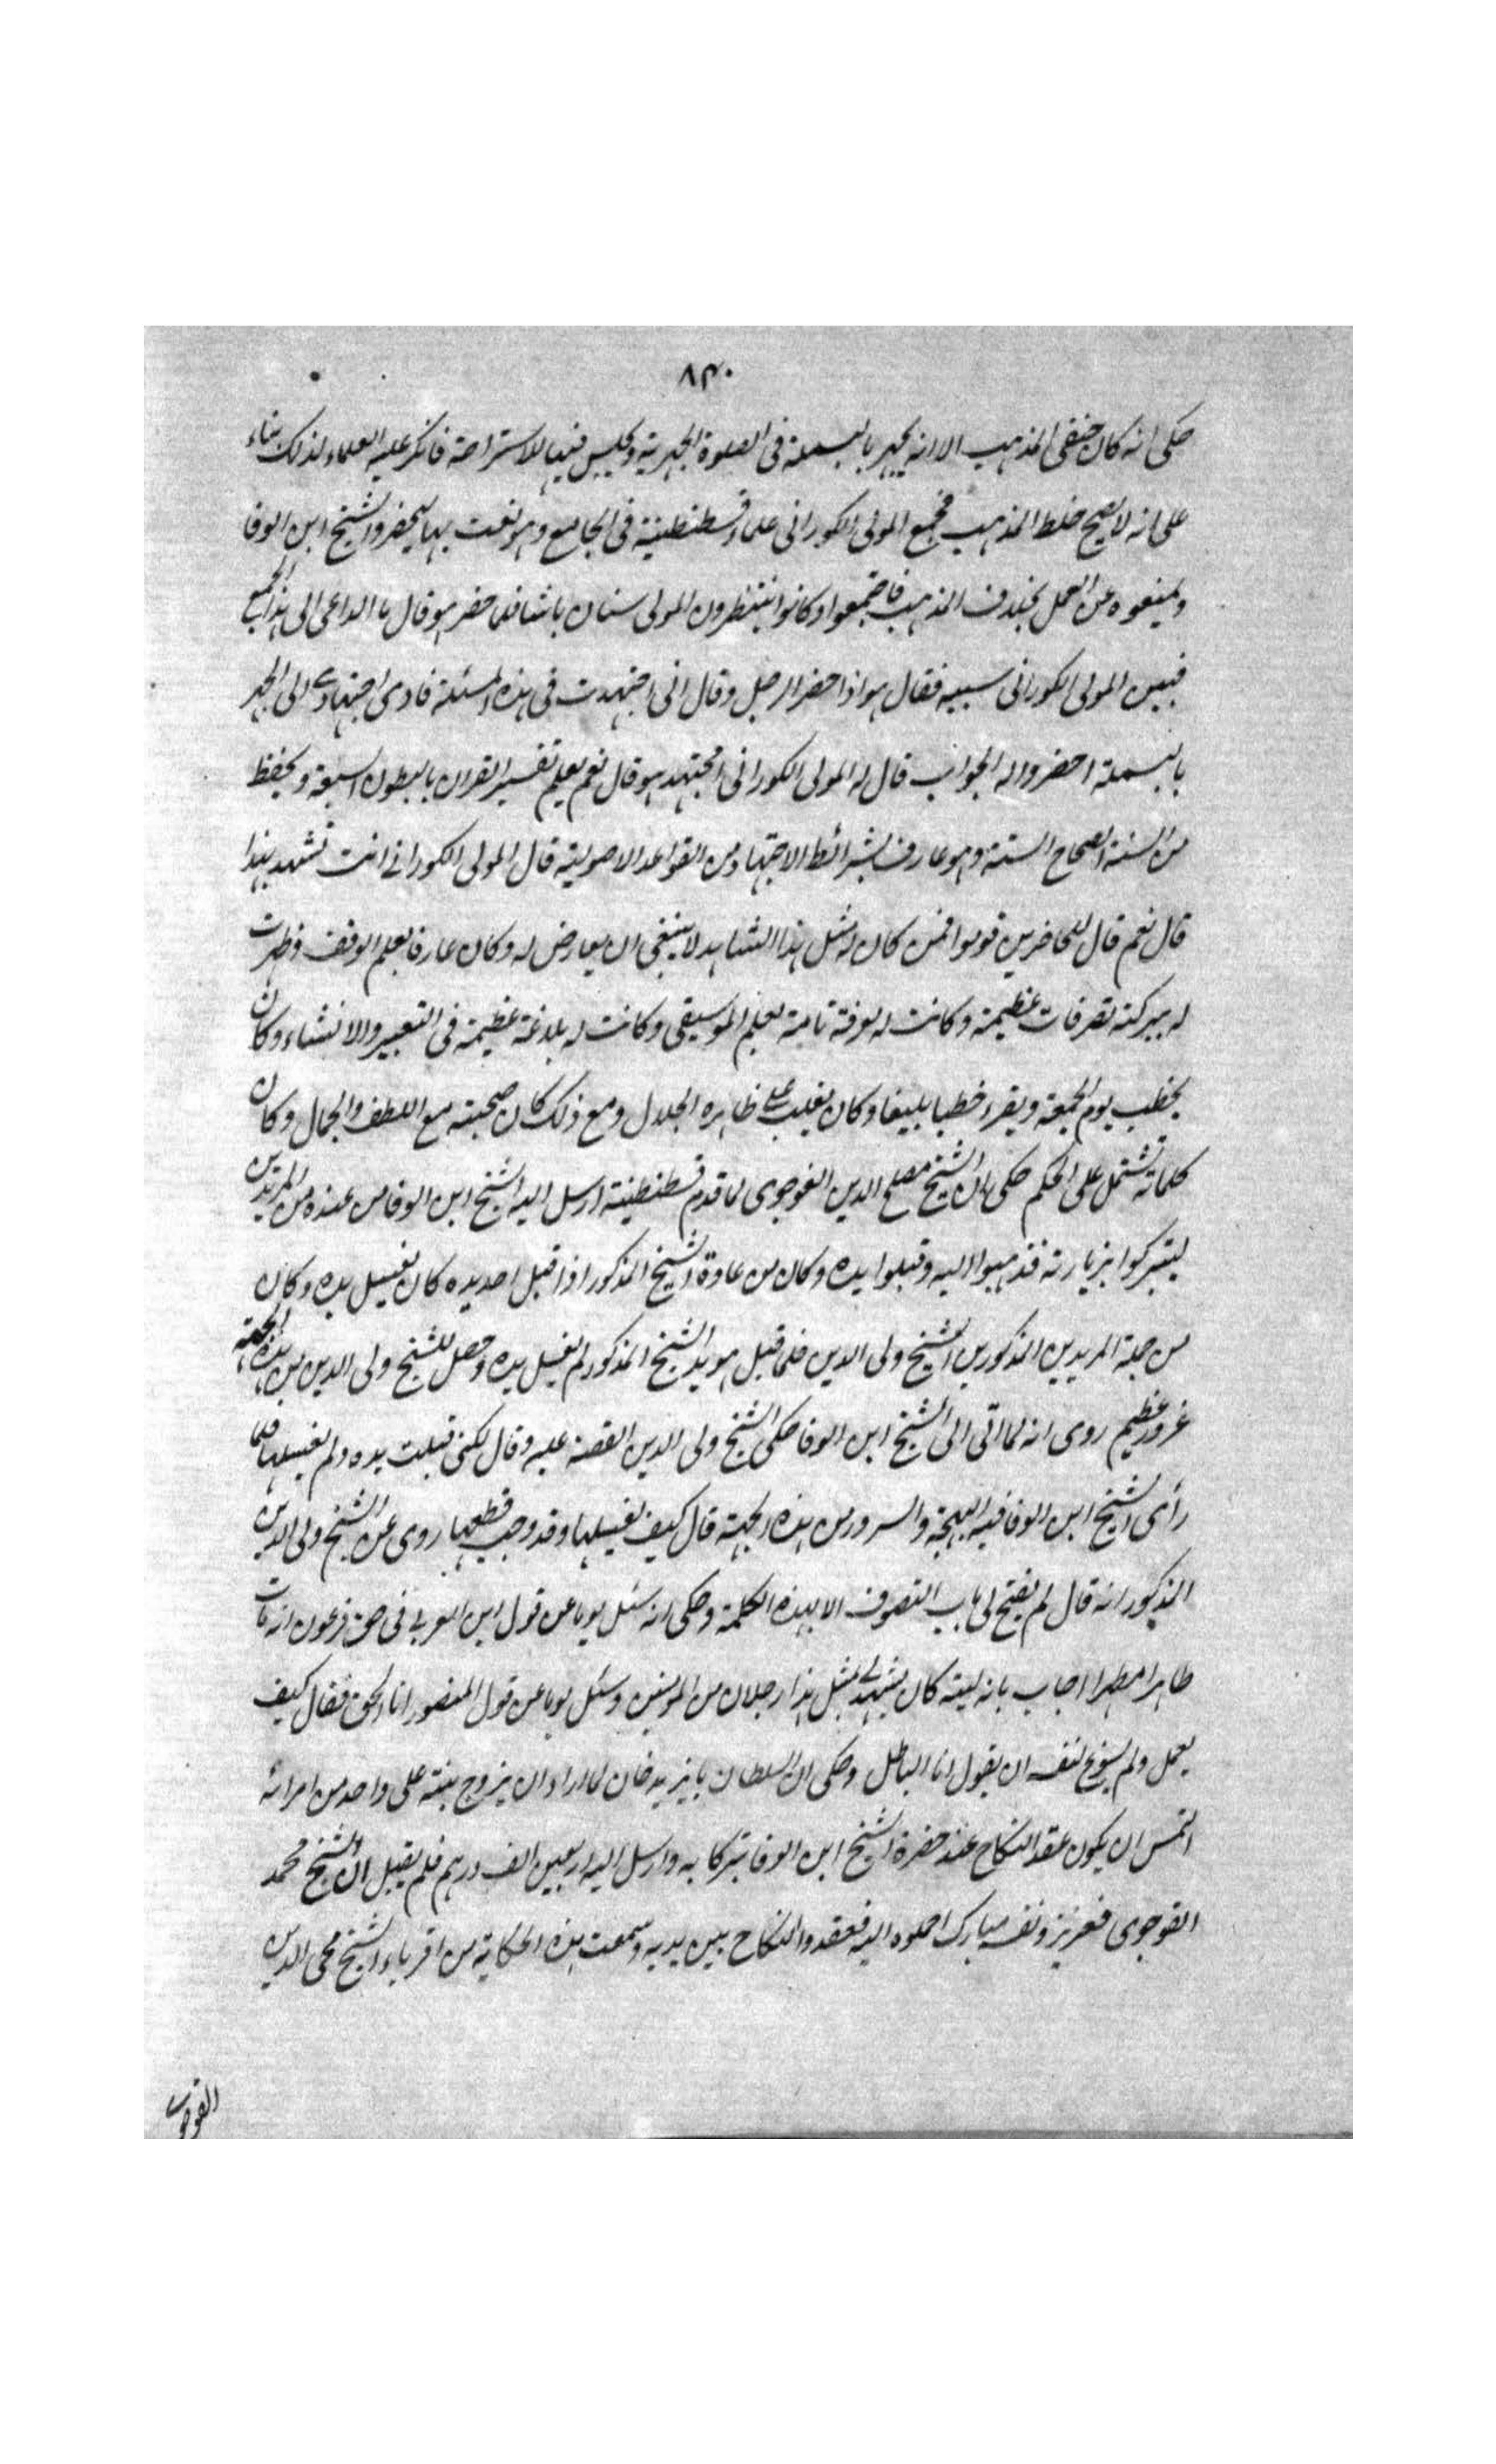 ٨٣٠
حكى انه كان حنفى المذهب الا انه يجهر بالبسملة فى الصلوة الجهرية ويجلس فيها للاستراحة فانكر عليه العلماء لذلك بناء
على انه لا يصح خلط المذهب فجمع المولى الكورانى علماء قسطنطينية فى الجامع وهو نفت بها ليحضروا الشيخ ابن الوفا
ويمنعوه عن العمل بخلاف المذهب فاجتمعوا وكانوا ينتظرون المولى سنان باشا فلما حضر هو قال ما الداعى الى هذا الجمع
فبين المولى الكورانى سببه فقال هو اذا حضر الرجل وقال انى اجتهدت فى هذه المسئلة فادى اجتهادى الى الجهر
بالبسملة احضروا له الجواب قال له المولى الكورانى امجتهد هو قال نعم يعلم تفسير القران بالبطون السبعة ويحفظ
من السنة الصحاح الستة وهو عارف بشرائط الاجتهاد من القواعد الاصولية قال المولى الكورانى انت تشهد بهذا
قال نعم قال للحاضرين قوموا فمن كان له مثل هذا الشاهد لا ينبغى ان يعارض له وكان عارفا بعلم الوفق فظهرت
له ببركته تصرفات عظيمة وكانت له معرفة تامة بعلم الموسيقى وكانت له بلاغة عظيمة فى التعبير والانشاء وكان
يخطب يوم الجمعة ويقرء خطبا بليغا وكان يغلب على ظاهره الجلال ومع ذلك كان صحبته مع اللطف والجمال وكان
كلماته تشتمل على الحكم حكى ان الشيخ مصلح الدين القوجوى لما قدم قسطنطينية ارسل اليه الشيخ ابن الوفا من عنده من المريدين
ليتبركوا بزيارته فذهبوا اليه وقبلوا يده وكان من عادة الشيخ المذكور اذا قبل احد يده كان يغسل يده وكان
من جملة المريدين المذكورين الشيخ ولى الدين فلما قبل هو يد الشيخ المذكور لم يغسل يده وحصل للشيخ ولى الدين من هذه الجهة
غرور عظيم روى انه لما اتى الى الشيخ ابن الوفا حكى الشيخ ولى الدين القصة عليه وقال لكنى قبلت يده ولم يغسلها فلما
رأى الشيخ ابن الوفا فيه البهجة والسرور من هذه الجهة قال كيف يغسلها وقد وجب قطعها روى عن الشيخ ولى الدين
المذكور انه قال لم يفتح لى باب التصوف الا بهذه الكلمة وحكى انه سئل يوما عن قول ابن العربى فى حق فرعون انه مات
طاهرا مطهرا اجاب بانه ليته كان يشهد لى بمثل هذا رجلان من المؤمنين وسئل يوما عن قول المنصور انا الحق فقال كيف
يعمل ولم يسوغ لنفسه ان يقول انا الباطل وحكى ان السلطان بايزيد خان لما اراد ان يزوج بنته على واحد من امرائه
التمس ان يكون عقد النكاح عند حضرة الشيخ ابن الوفا تبركا به وارسل اليه اربعين الف درهم فلم يقبل ان الشيخ محمد
القوجوى فعزيز ونفسه مبارك احملوه اليه فعقدوا النكاح بين يديه وسمعت هذه الحكاية من اقرباء الشيخ محى الدين
القوجوى